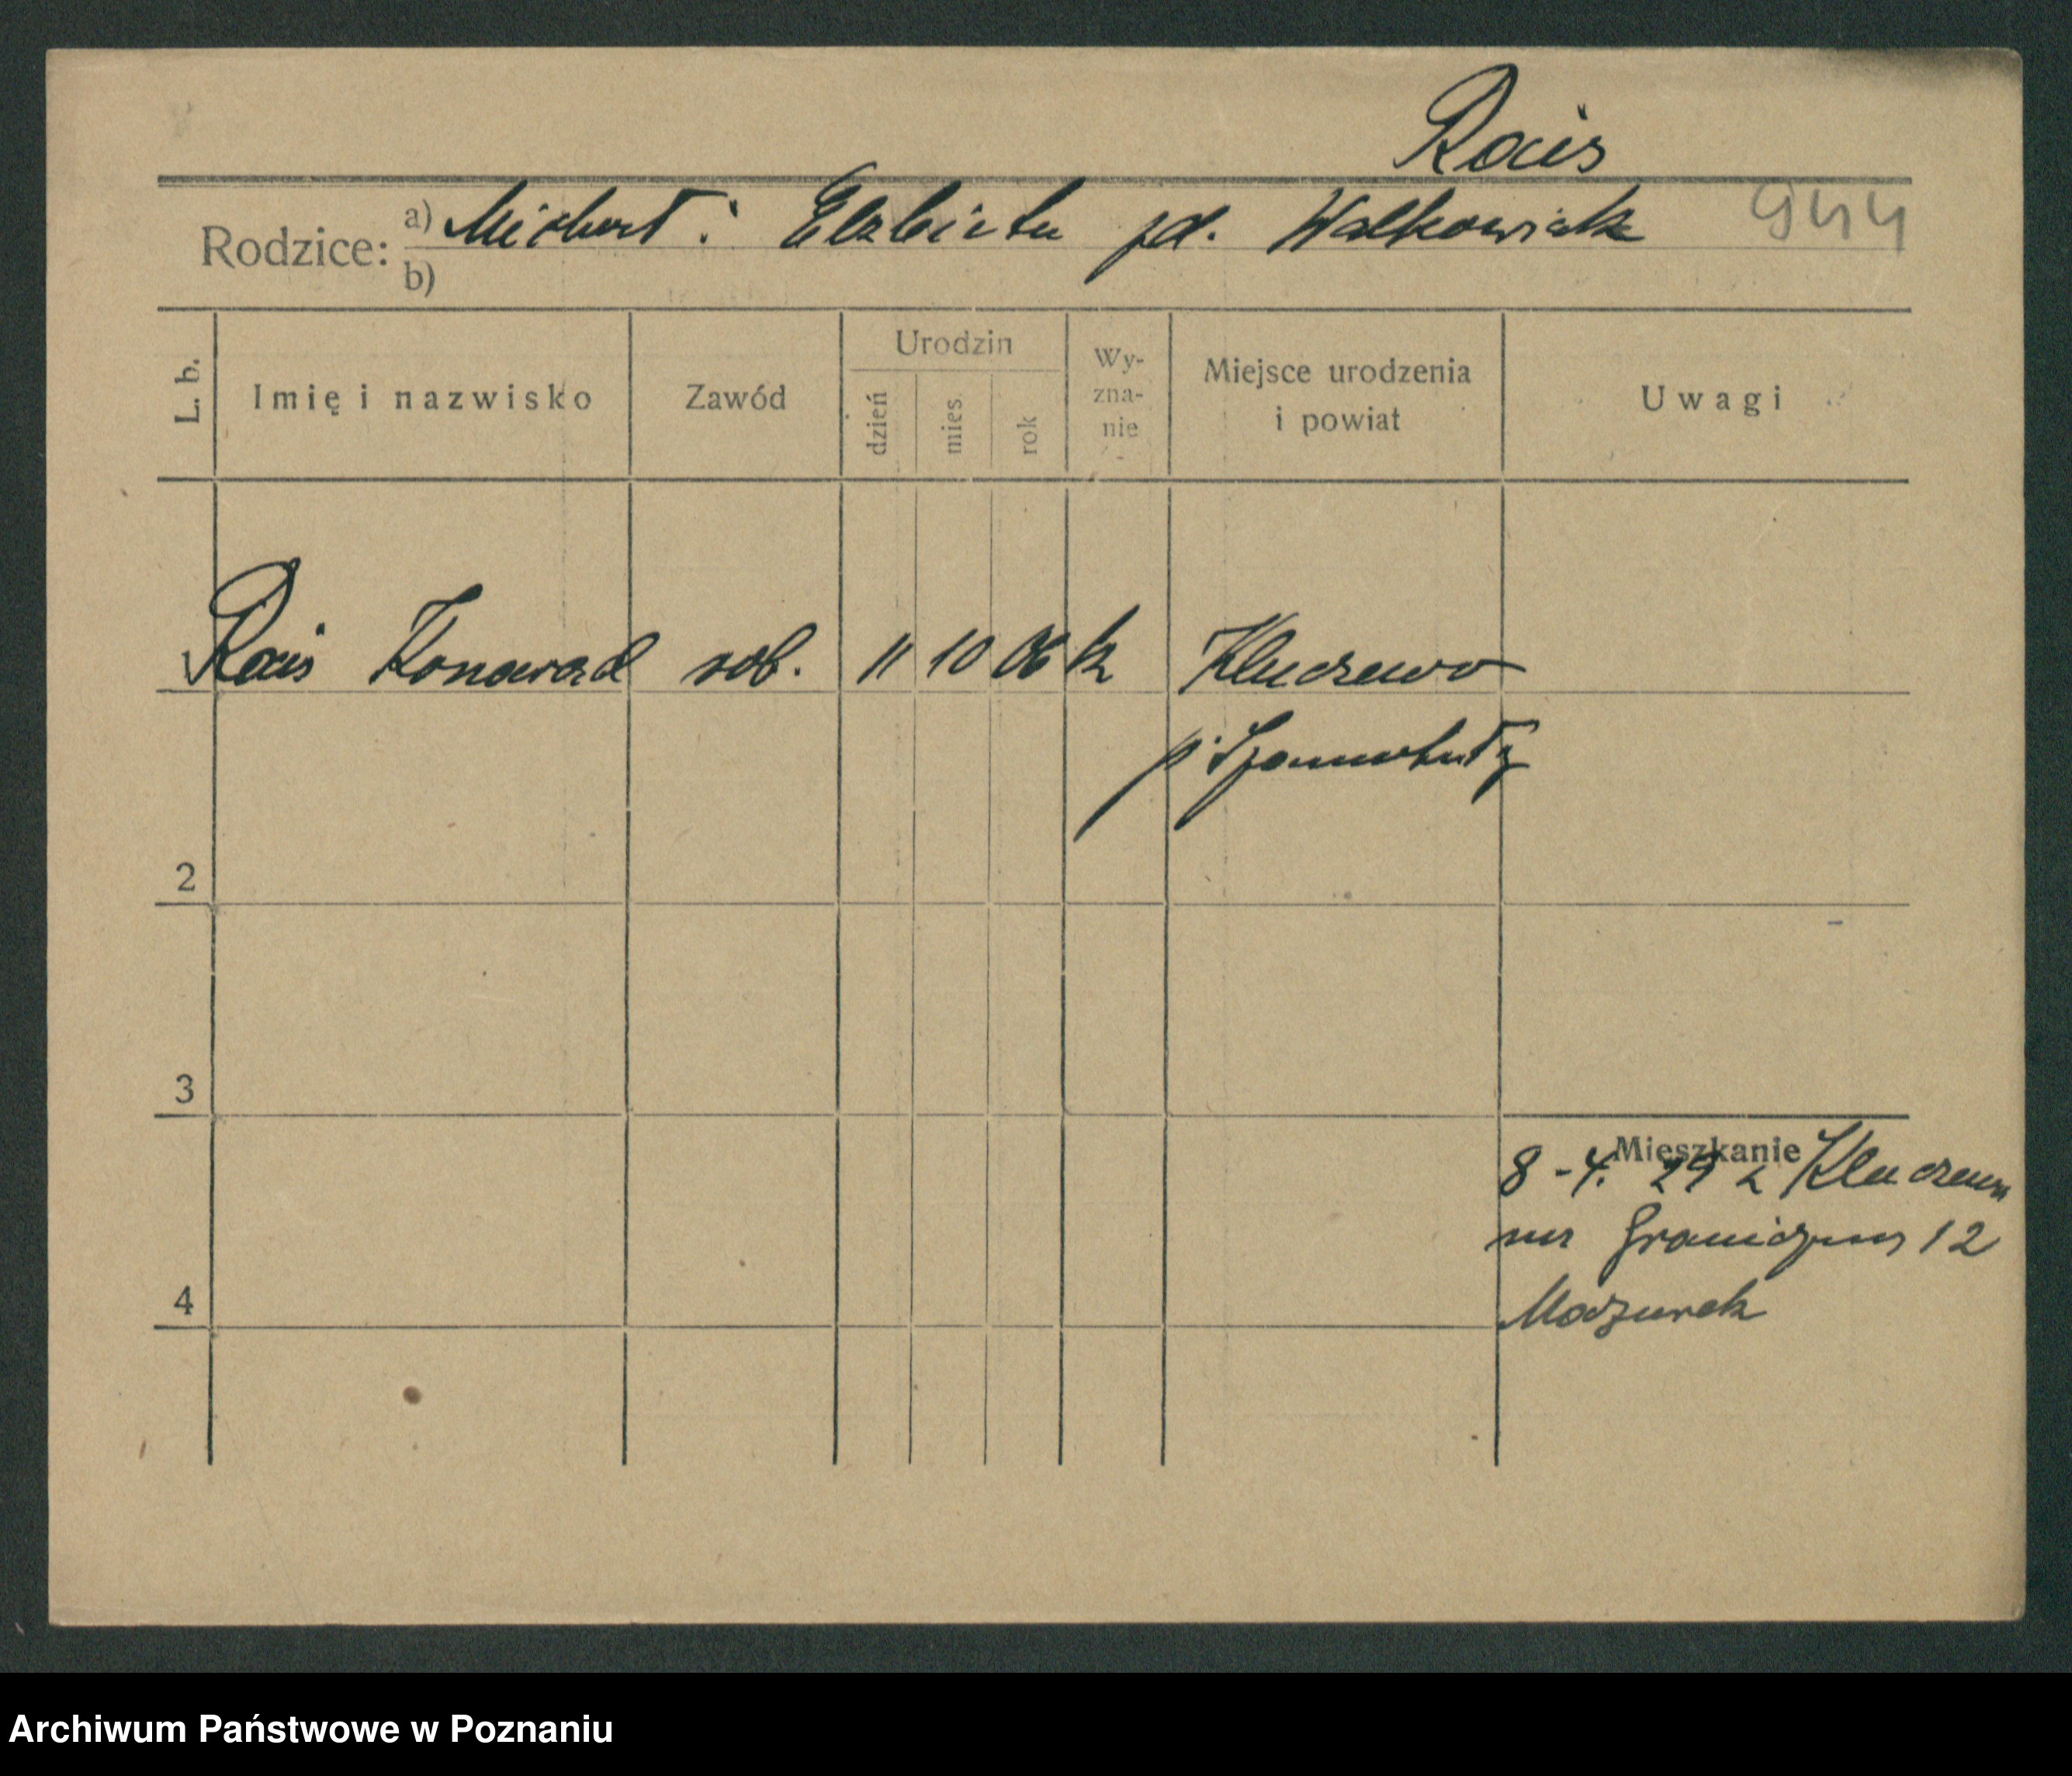 Rais
Rodzice: a) Michał i Elzbieta zd. Walkowiak 944
b)
L. b. Imię i nazwisko Zawód Urodzin dzień mies. rok Wy-zna-nie Miejsce urodzenia i powiat Uwagi
1 Rais Konarad rob. 11 10 06 k Kluczewo
p. Szamotuły
2
3
Mieszkanie
8-4. 29 z Kluczewa
na Graniczną 12
4
Mazurek
Archiwum Państwowe w Poznaniu